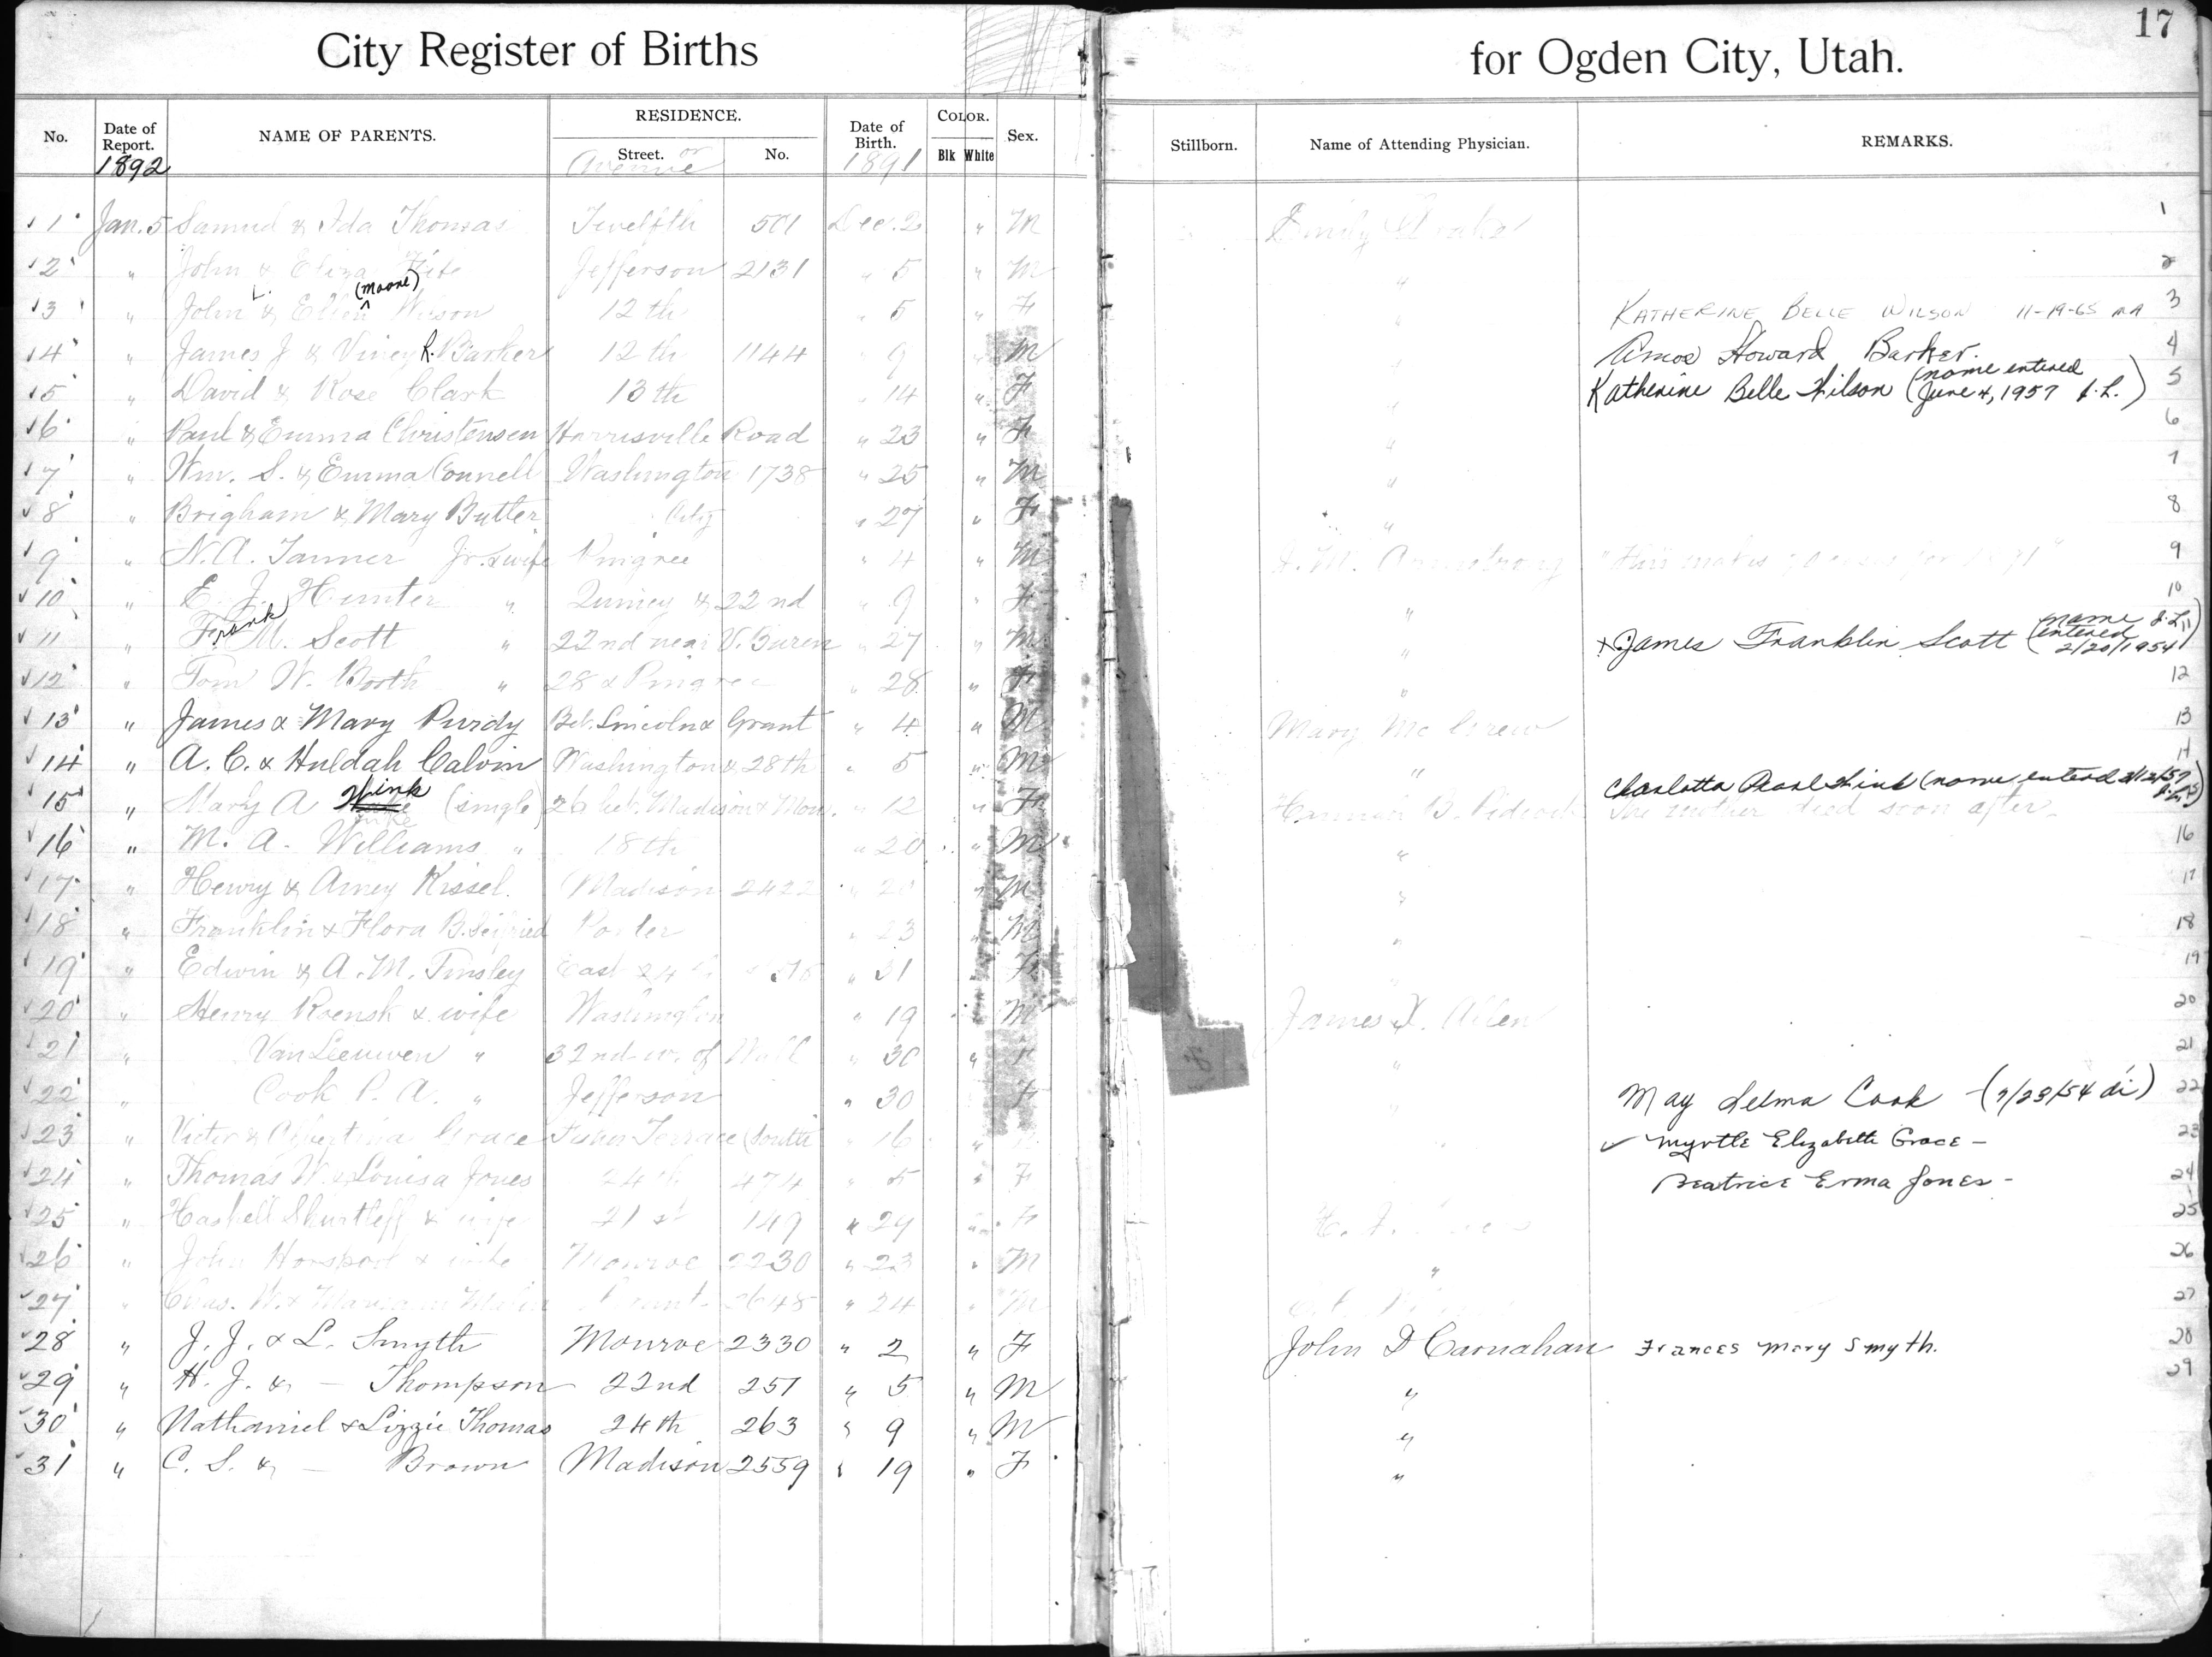 17
City Register of Births for Ogden City, Utah.
No. Date of Report. NAME OF PARENTS. RESIDENCE. Street. No. Date of Birth. COLOR. Blk White Sex. Stillborn. Name of Attending Physician. REMARKS.
1892 Avenue or 1891
1 Jan. 5 Samuel & Ida Thomas Twelfth 501 Dec. 2 " M Emily 1
2 " John & Eliza Jefferson 2131 " 5 " M " 2
3 " John L. & Ellen (Moore) Wilson 12th " 5 " F " KATHERINE BELLE WILSON 11-19-65 3
4 " James J & Viney R. Barker 12th 1144 " 9 " M " Amos Howard Barker. 4
5 " David & Rose Clark 13th " 14 " F " Katherine Belle Wilson (name entered June 4, 1957 J.L.) 5
6 " Paul & Emma Christensen Harrisville Road " 23 " F " 6
7 " Wm. S. & Emma Connell Washington 1738 " 25 " M " 7
8 " Brigham & Mary Butler City " 27 " F " 8
9 " N. A. Tanner Jr. & wife Pingree " 4 " M Armstrong "This makes 9
10 " E. J. Hunter " Quincy & 22nd " 9 " F " 10
11 " Frank M. Scott " 22nd near V. Buren " 27 " M " x James Franklin Scott (name entered 2/20/1954 J.L.) 11
12 " Tom W. Booth " 28 & Pingree " 28 " F " 12
13 " James & Mary Purdy Bet. Lincoln & Grant " 4 " M Mary McCrew 13
14 " A. C. & Huldah Calvin Washington & 28th " 5 " M " 14
15 " Mary A Wink (single) 26 bet. Madison & Mon. " 12 " F Hannah B. Pidcock Charlotta Pearl Wink (name entered 2/12/57 J.L.) The mother died soon after. 15
16 " M. A. Williams " 18th " 20 " M " 16
17 " Henry & Amey Kissel. Madison 2422 " 20 " M " 17
18 " Franklin & Flora B. Seifried Porter " 23 " M " 18
19 " Edwin & A. M. Tinsley East 24 " 31 " F " 19
20 " Henry Roensh & wife Washington " 19 " M James X. Allen 20
21 " Van Leeuwen " 32nd w. of Wall " 30 " F " 21
22 " Cook P. A. " Jefferson " 30 F " May Selma Cook - (7/23/54 di) 22
23 " Victor & Grace Fisher Terrace (South " 16 " Myrtle Elizabeth Grace - 23
24 " Thomas W. & Louisa Jones 24th 474 " 5 " F Beatrice Erma Jones - 24
25 " Haskell Shurtleff & wife 21st 149 " 29 " F 25
26 " John Horspool & wife Monroe 2230 " 23 " M " 26
27 " Chas. W. & Grant 2648 " 24 " M 27
28 " J. J. & L. Smyth Monroe 2330 " 2 " F John D Carnahan Frances Mary Smyth. 28
29 " H. J. & — Thompson 22nd 251 " 5 " M " 29
30 " Nathaniel & Lizzie Thomas 24th 263 " 9 " M "
31 " C. S. & — Brown Madison 2559 " 19 " F "